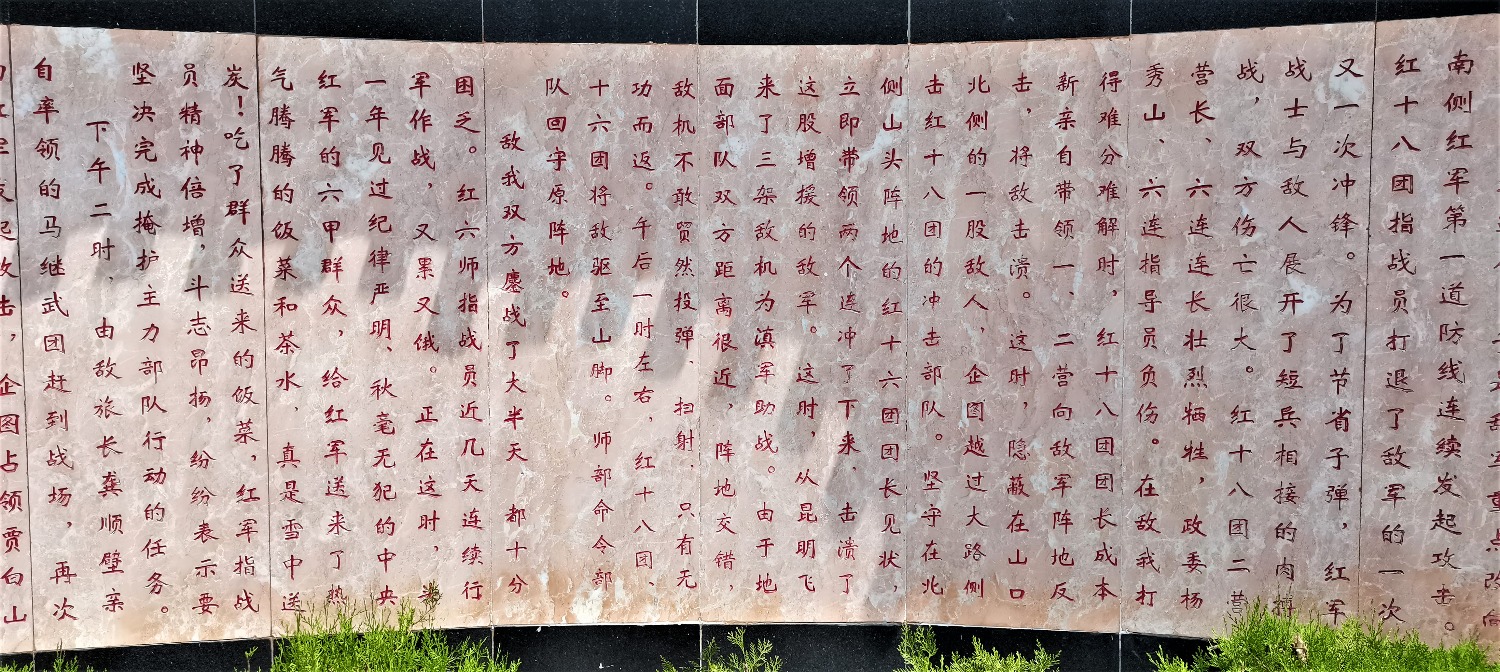 南侧红军第一道防线连续发起攻击。
红十八团指战员打退了敌军的一次
又一次冲锋。为了节省子弹，红军
战士与敌人展开了短兵相接的肉搏
战，双方伤亡很大。红十八团二营
营长、六连连长壮烈牺牲，政委杨
秀山、六连指导员负伤。在敌我打
得难分难解时，红十八团团长成本
新亲自带领一、二营向敌军阵地反
击，将敌击溃。这时，隐蔽在山口
北侧的一股敌人，企图越过大路侧
击红十八团的冲击部队。坚守在北
侧山头阵地的红十六团团长见状，
立即带领两个连冲了下来，击溃了
这股增援的敌军。这时，从昆明飞
来了三架敌机为滇军助战。由于地
面部队双方距离很近，阵地交错，
敌机不敢贸然投弹、扫射，只有无
功而返。午后一时左右，红十八团、
十六团将敌驱至山脚。师部命令部
队回守原阵地。
敌我双方鏖战了大半天，都十分
困乏。红六师指战员近几天连续行
军作战，又累又饿。正在这时，
一年见过纪律严明、秋毫无犯的中央
红军的六甲群众，给红军送来了热
气腾腾的饭菜和茶水，真是雪中送
炭！吃了群众送来的饭菜，红军指战
员精神倍增，斗志昂扬，纷纷表示要
坚决完成掩护主力部队行动的任务。
下午二时，由敌旅长龚顺壁亲
自率领的马继武团赶到战场，再次
发起攻击，企图占领贾白山